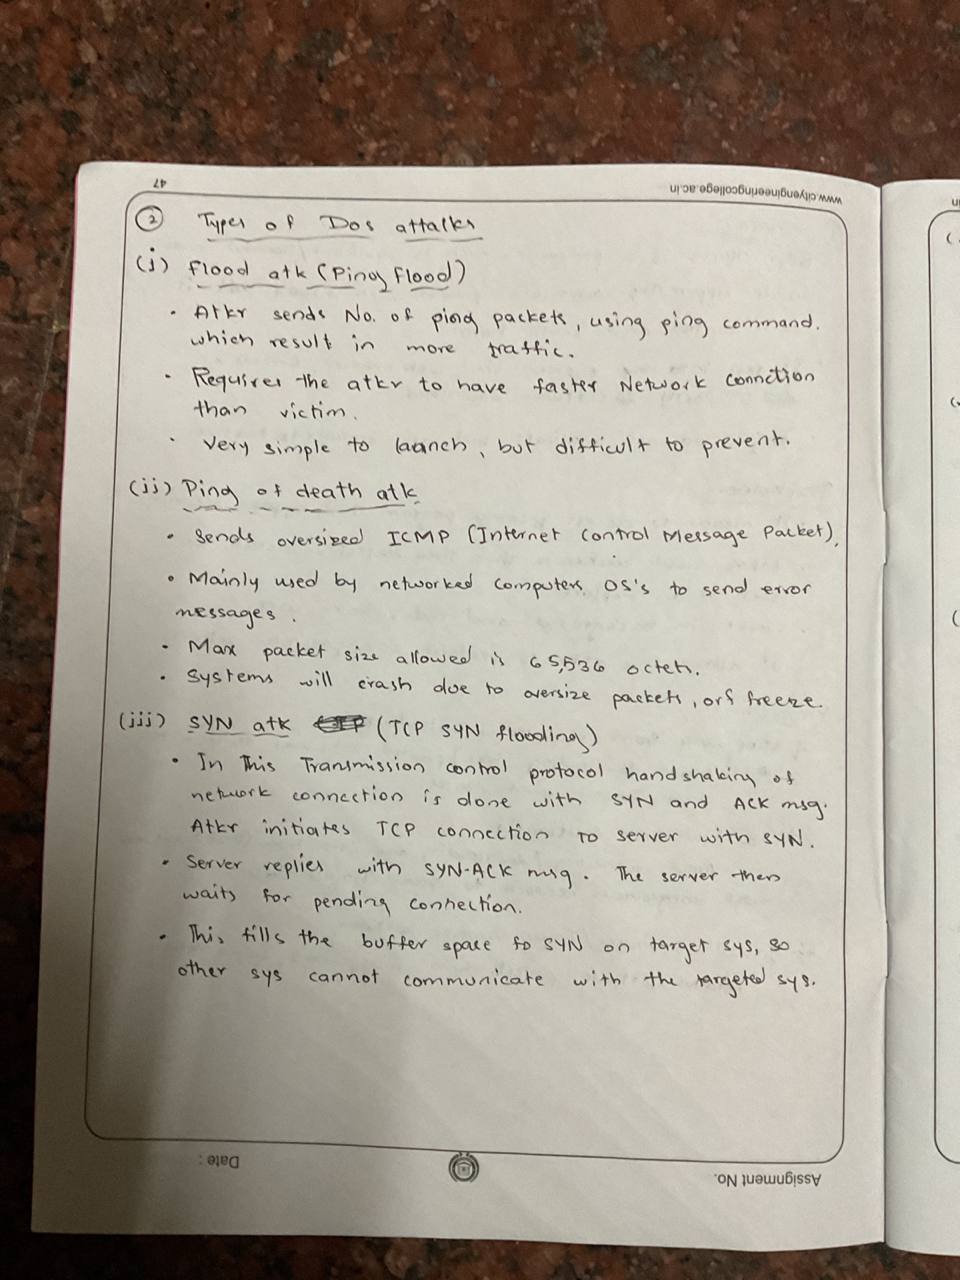 47
www.cityengineeringcollege.ac.in
② Types of Dos attalks
(i) flood atk (Ping flood)
• Atkr sends No. of ping packets, using ping command.
which result in more traffic.
• Requires the atkr to have faster Network connction
than victim.
• Very simple to launch, but difficult to prevent.
(ii) Ping of death atk
• Sends oversized ICMP (Internet Control Message Packet),
• Mainly used by networked computers OS's to send error
messages.
• Max packet size allowed is 65,536 octets.
• Systems will crash due to oversize packets, or freeze.
(iii) SYN atk (TCP SYN flooding)
• In This Transmission control protocol handshaking of
network connection is done with SYN and ACK msg.
Atkr initiates TCP connection to server with SYN.
• Server replies with SYN-ACK msg. The server then
waits for pending connection.
• This fills the buffer space fo SYN on target sys, so
other sys cannot communicate with the targeted sys.
Date :
Assignment No.